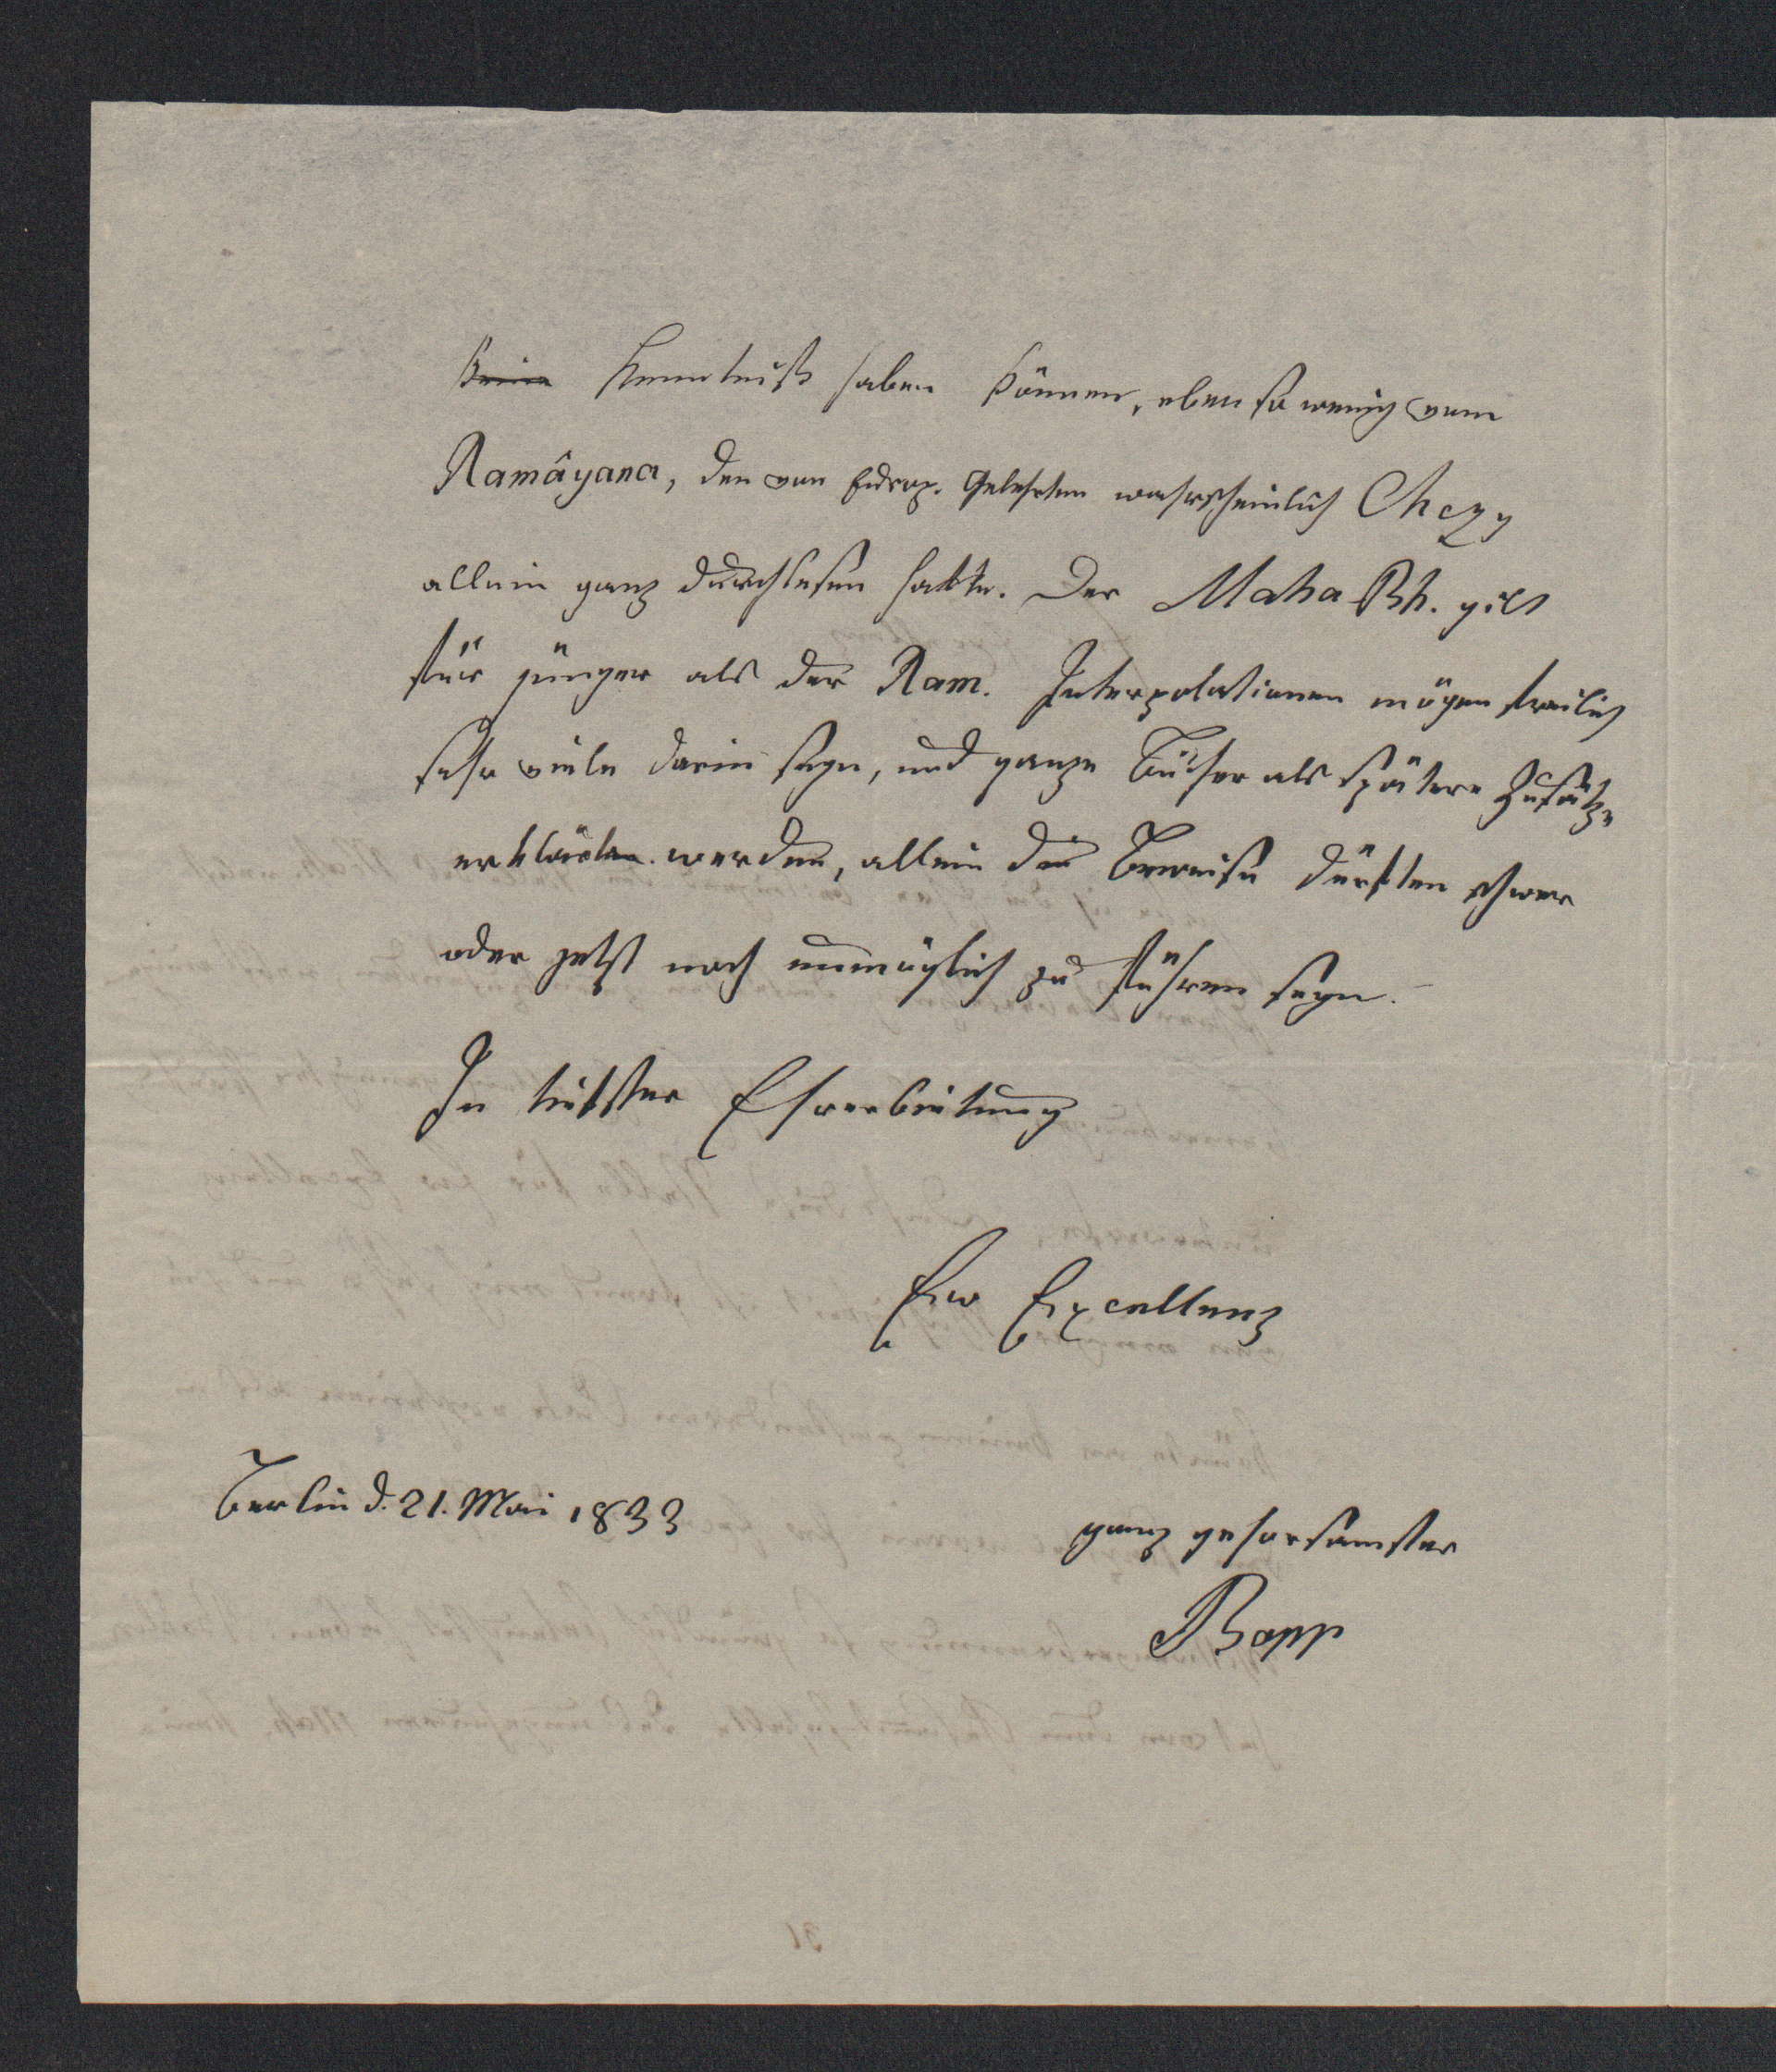 keine Kenntniß haben können, eben so wenig vom
Ramâyana, den von Europ. Gelehrten wahrscheinlich Chezy
allein ganz durchlesen hatte. Der Maha Bh. gilt
für jünger als der Ram. Interpolationen mögen freilich
sehr viele darin seyn, und ganze Bücher als spätere Zusätze
erklärt werden, allein die Beweise dürften schwer
oder jetzt noch unmöglich zu führen seyn.
In tiefster Ehrerbietung
Ew Excellenz
Berlin d. 21. Mai 1833
ganz gehorsamster
Bopp